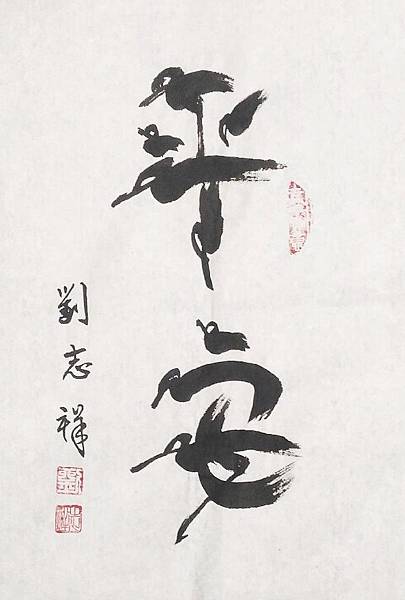 平安
劉志祥